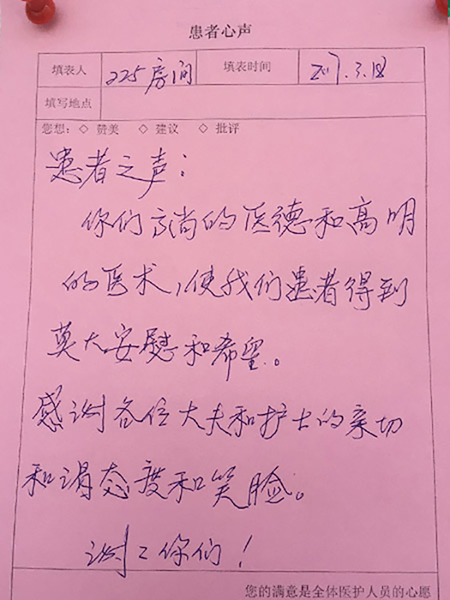 患者心声
填表人 225房间 填表时间 2017.3.18
填写地点
您想：◇ 赞美 ◇ 建议 ◇ 批评
患者之声：
你们高尚的医德和高明
的医术，使我们患者得到
莫大安慰和希望。
感谢各位大夫和护士的亲切
和谒态度和笑脸。
谢谢你们！
您的满意是全体医护人员的心愿